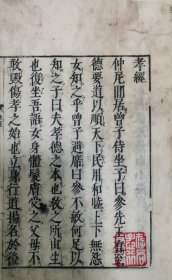 孝經
仲尼閒居曾子侍坐子曰參先王有至
德要道以順天下民用和睦上下無怨
女知之乎曾子避席曰參不敏何足以
知之子曰夫孝德之本也教之所由生
也復坐吾語女身體髮膚受之父母不
敢毀傷孝之始也立身行道揚名於後